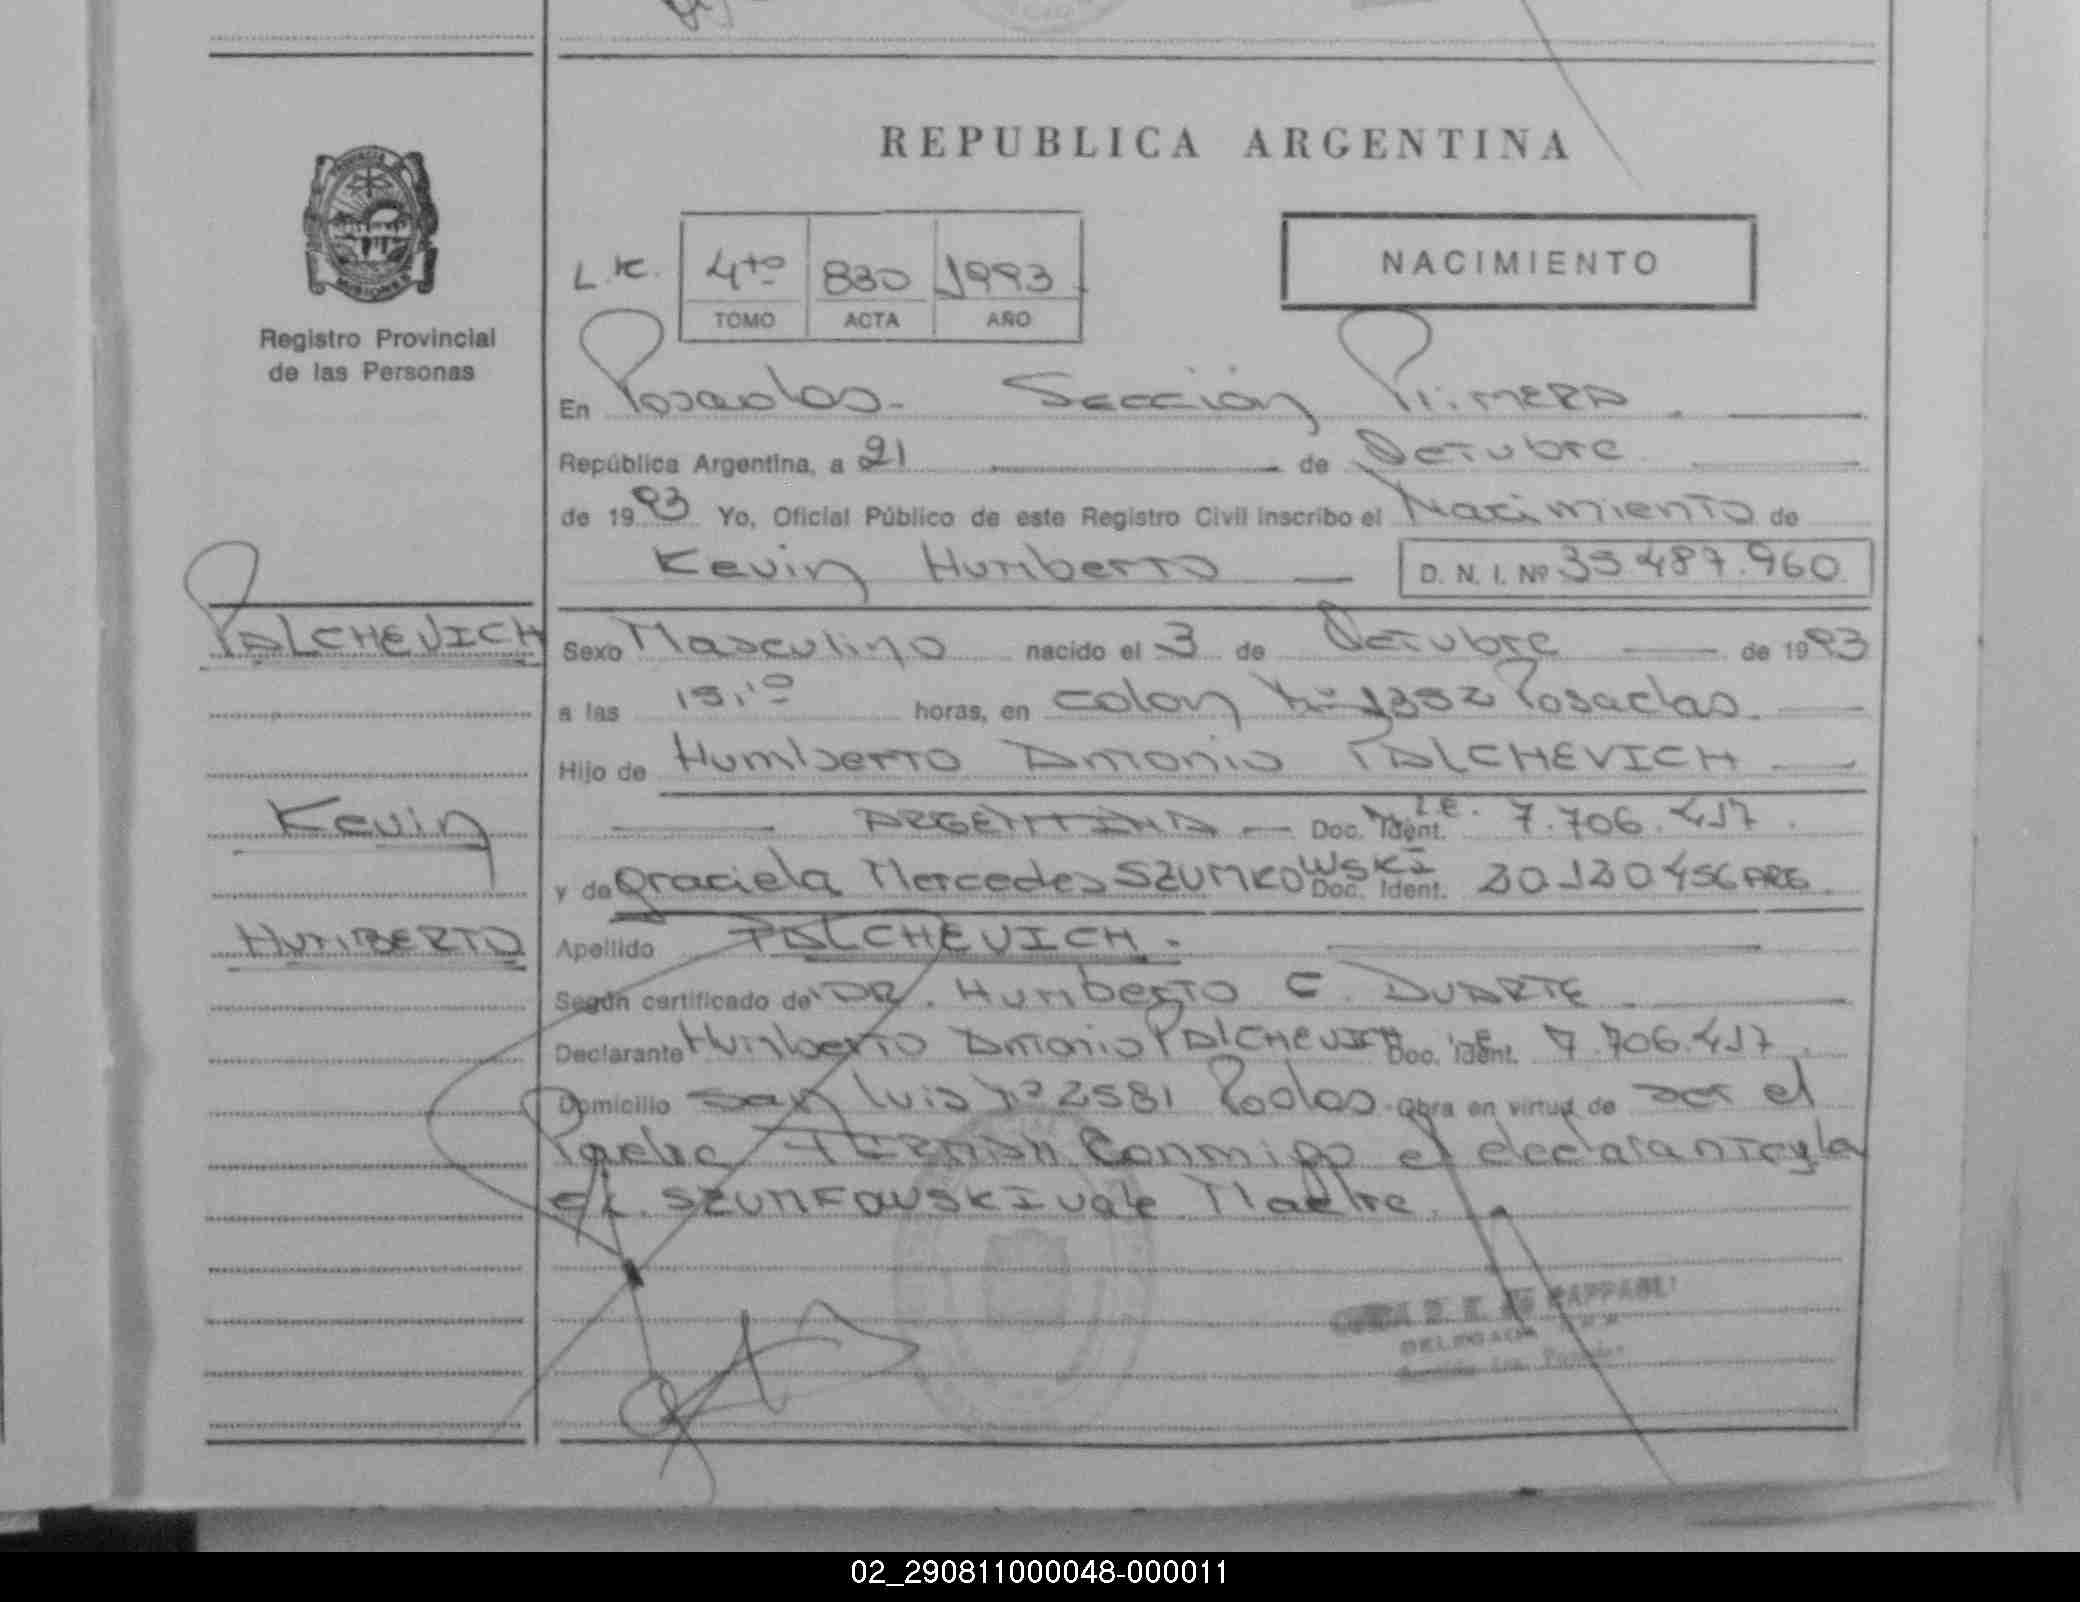 REPUBLICA ARGENTINA
PROVINCIA DE
MISIONES
Registro Provincial
de las Personas
4to 830 1993
TOMO ACTA AÑO
NACIMIENTO
En Posadas. Sección Primera.
República Argentina, a 21 de Octubre
de 1993 Yo, Oficial Público de este Registro Civil inscribo el Nacimiento de
Kevin Humberto D. N. I. Nº 35.487.960
PALCHEVICH
Sexo Masculino nacido el 3 de Octubre de 1993
a las horas, en Colon Nº 1352 Posadas.
Hijo de Humberto Antonio PALCHEVICH
Kevin
ARGENTINA Doc. Ident. L.E. 7.706.417.
y de Graciela Mercedes SZUMKOWSKI Doc. Ident. 20.120.456 ARG.
HUMBERTO
Apellido PALCHEVICH.
Según certificado de DR. Humberto C. DUARTE
Declarante Humberto Antonio PALCHEVICH Doc. Ident. 7.706.417.
Domicilio San Luis Nº 2581 Pdas. Obra en virtud de ser el
Padre FIRMAN Conmigo el declarante y la
SZUMKOWSKI vale Madre.
02_290811000048-000011